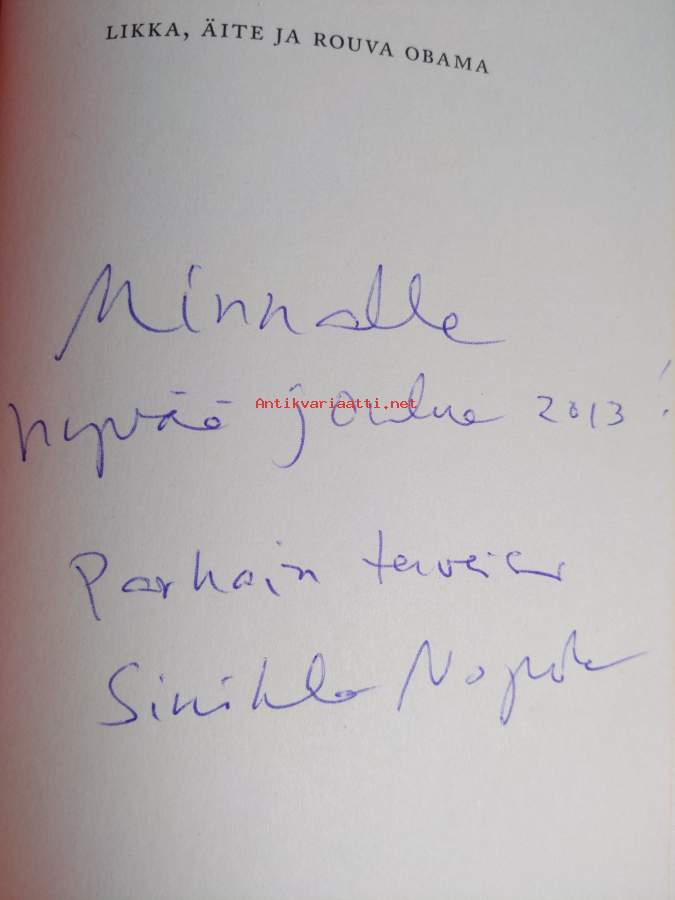 LIKKA, ÄITE JA ROUVA OBAMA
Minnalle
hyvää joulua 2013!
Antikvariaatti.net
Parhain terveisin
Sinikka Nopola